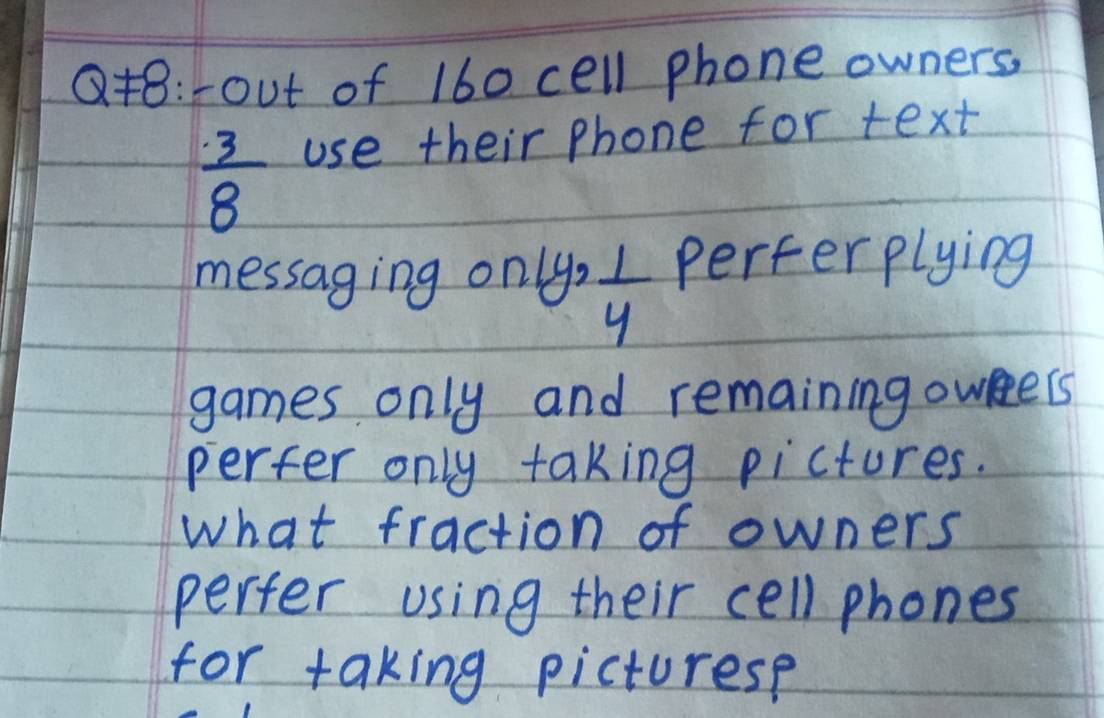 Q#8:- out of 160 cell phone owners,
3/8 use their phone for text
messaging only, 1/4 perfer plying
games only and remaining owners
perfer only taking pictures.
what fraction of owners
perfer using their cell phones
for taking pictures?